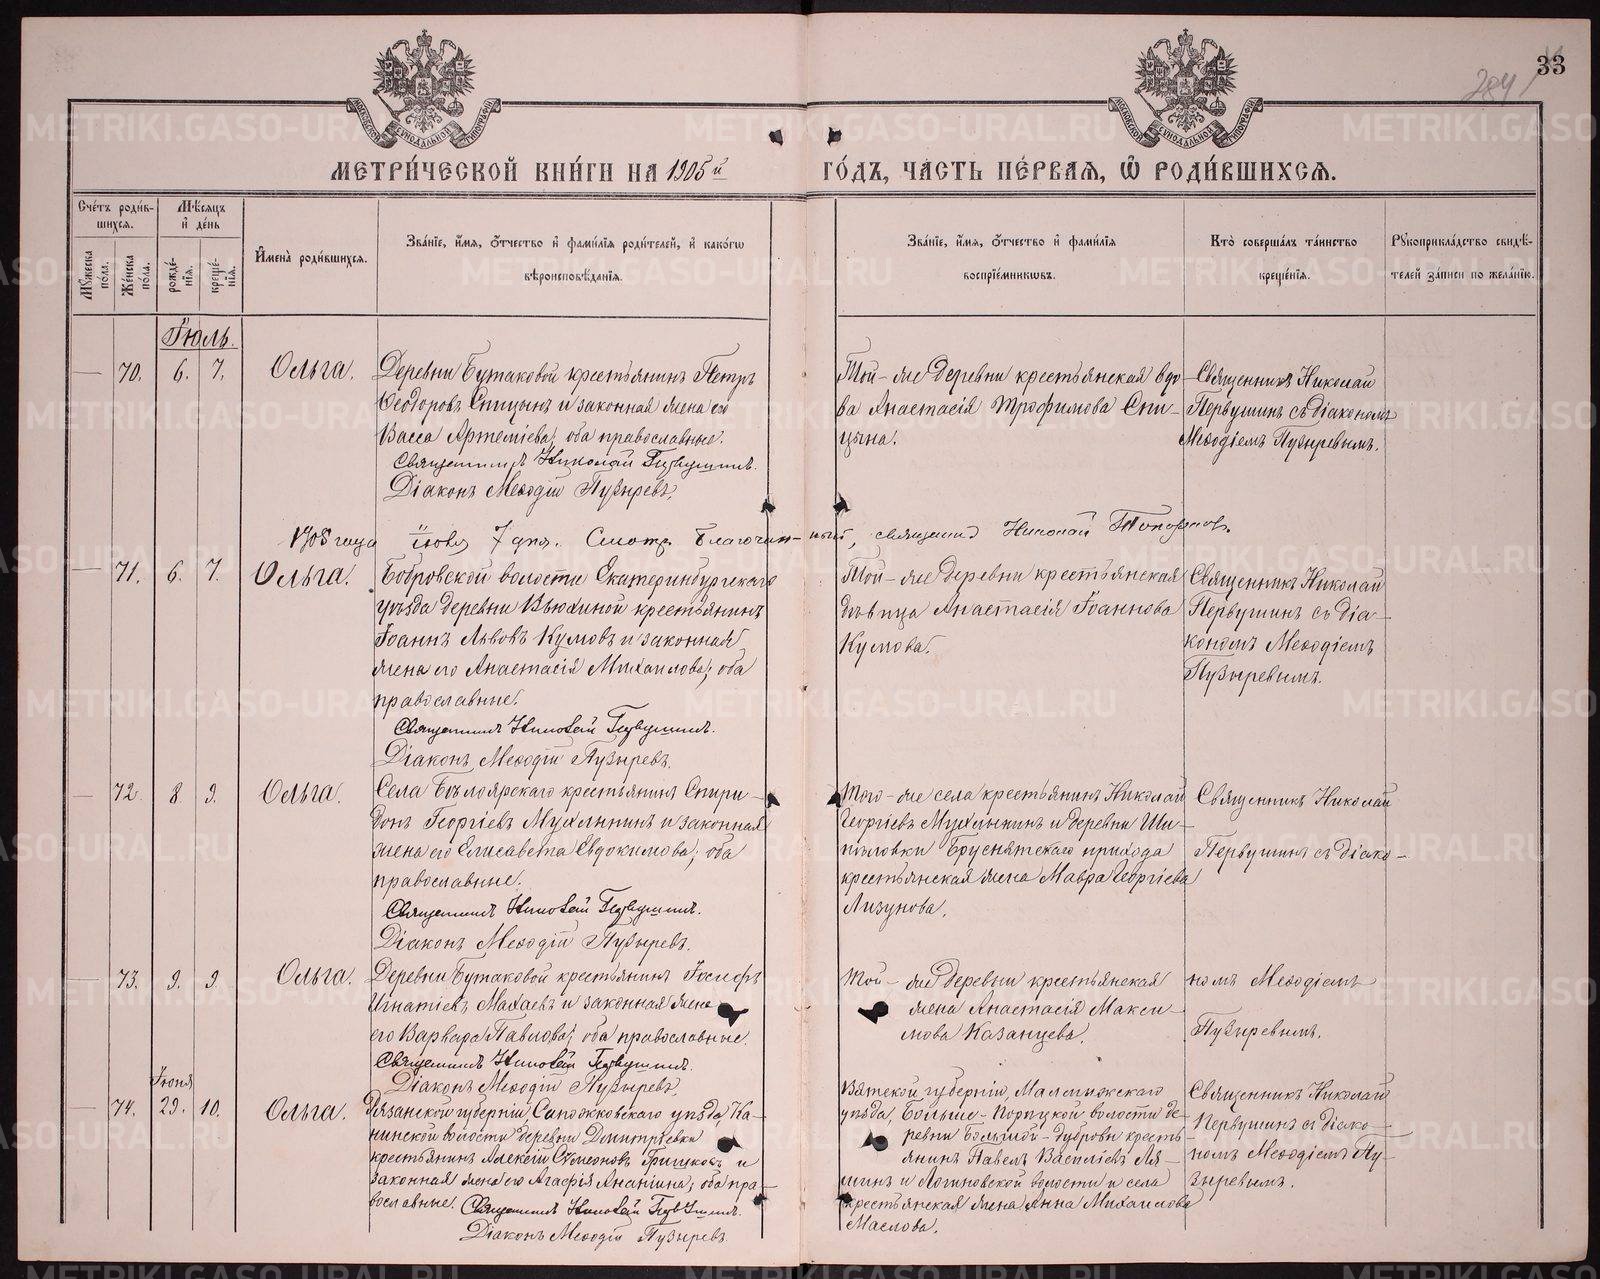 33
284
МОСКОВСКОЙ СѴНОДАЛЬНОЙ ТИПОГРАФІИ
МОСКОВСКОЙ СѴНОДАЛЬНОЙ ТИПОГРАФІИ
МЕТРИ́ЧЕСКОЙ КНИ́ГИ НА 1905й ГО́ДЪ, ЧА́СТЬ ПЕ́РВАЯ, Ѡ РОДИ́ВШИХСЯ.
Сче́тъ роди́в-
шихся.
Мѣ́сяцъ
и де́нь
Имена̀ роди́вшихся.
Зва́нїе, и́мя, о́тчество и фами́лїя роди́телей, и како́гѡ
вѣроисповѣ́данїя.
Зва́нїе, и́мя, о́тчество и фами́лїя
воспрїе́мникѡвъ.
Кто̀ соверша́лъ та́инство
креще́нїя.
Рꙋкоприкла́дство свидѣ́-
телей за́писи по жела́нїю.
Мꙋ́жеска
по́ла.
Же́нска
по́ла.
рожде́-
нїя.
креще́-
нїя.
Іюль.
— 70. 6. 7. Ольга.
Деревни Бутаковой крестьянинъ Петръ
Ѳеодоровъ Спицынъ и законная жена его
Васса Артемиева, оба православные.
Священникъ Николай Первушинъ.
Діаконъ Меѳодій Пузыревъ.
Той-же деревни крестьянская вдо-
ва Анастасія Трофимова Спи-
цына.
Священникъ Николай
Первушинъ съ діакономъ
Меѳодіемъ Пузыревымъ.
1905 года іюля 7 дня. Смотр. Благочин-ный, священ. Николай
— 71. 6. 7. Ольга.
Бобровской волости Екатеринбургскаго
уѣзда деревни Вьюхиной крестьянинъ
Іоаннъ Львовъ Кумовъ и законная
жена его Анастасія Михаилова; оба
православные.
Священникъ Николай Первушинъ.
Діаконъ Меѳодій Пузыревъ.
Той-же деревни крестьянская
дѣвица Анастасія Іоаннова
Кумова.
Священникъ Николай
Первушинъ съ діа-
кономъ Меѳодіемъ
Пузыревымъ.
— 72. 8. 9. Ольга.
Села Бѣлоярскаго крестьянинъ Спири-
донъ Георгіевъ Мухлынинъ и законная
жена его Елисавета Евдокимова; оба
православные.
Священникъ Николай Первушинъ.
Діаконъ Меѳодій Пузыревъ.
Того-же села крестьянинъ Николай
Георгіевъ Мухлынинъ и деревни Ши-
пиловки Бруснятскаго прихода
крестьянская жена Мавра Георгіева
Лизунова.
Священникъ Николай
Первушинъ съ діако-
— 73. 9. 9. Ольга.
Деревни Бутаковой крестьянинъ Іосифъ
Игнатіевъ Махаевъ и законная жена
его Варвара Павлова; оба православные.
Священникъ Николай Первушинъ.
Діаконъ Меѳодій Пузыревъ.
Той-же деревни крестьянская
жена Анастасія Макси-
мова Казанцева.
номъ Меѳодіемъ
Пузыревымъ.
Іюня
— 74. 29. 10. Ольга.
Рязанской губерніи Сапожковскаго уѣзда, Ка-
нинской волости деревни Дмитріевки
крестьянинъ Алексій Сѵмеоновъ Гришковъ и
законная жена его Агафія Ананіина; оба пра-
вославные. Священникъ Николай Первушинъ.
Діаконъ Меѳодій Пузыревъ.
Вятской губерніи, Малмыжскаго
уѣзда, Больше-Порецкой волости де-
ревни Большой-Дубровы кресть-
янинъ Павелъ Василіевъ Ля-
шинъ и Логиновской волости и села
крестьянская жена Анна Михаилова
Маслова.
Священникъ Николай
Первушинъ съ діако-
номъ Меѳодіемъ Пу-
зыревымъ.
METRIKI.GASO-URAL.RU